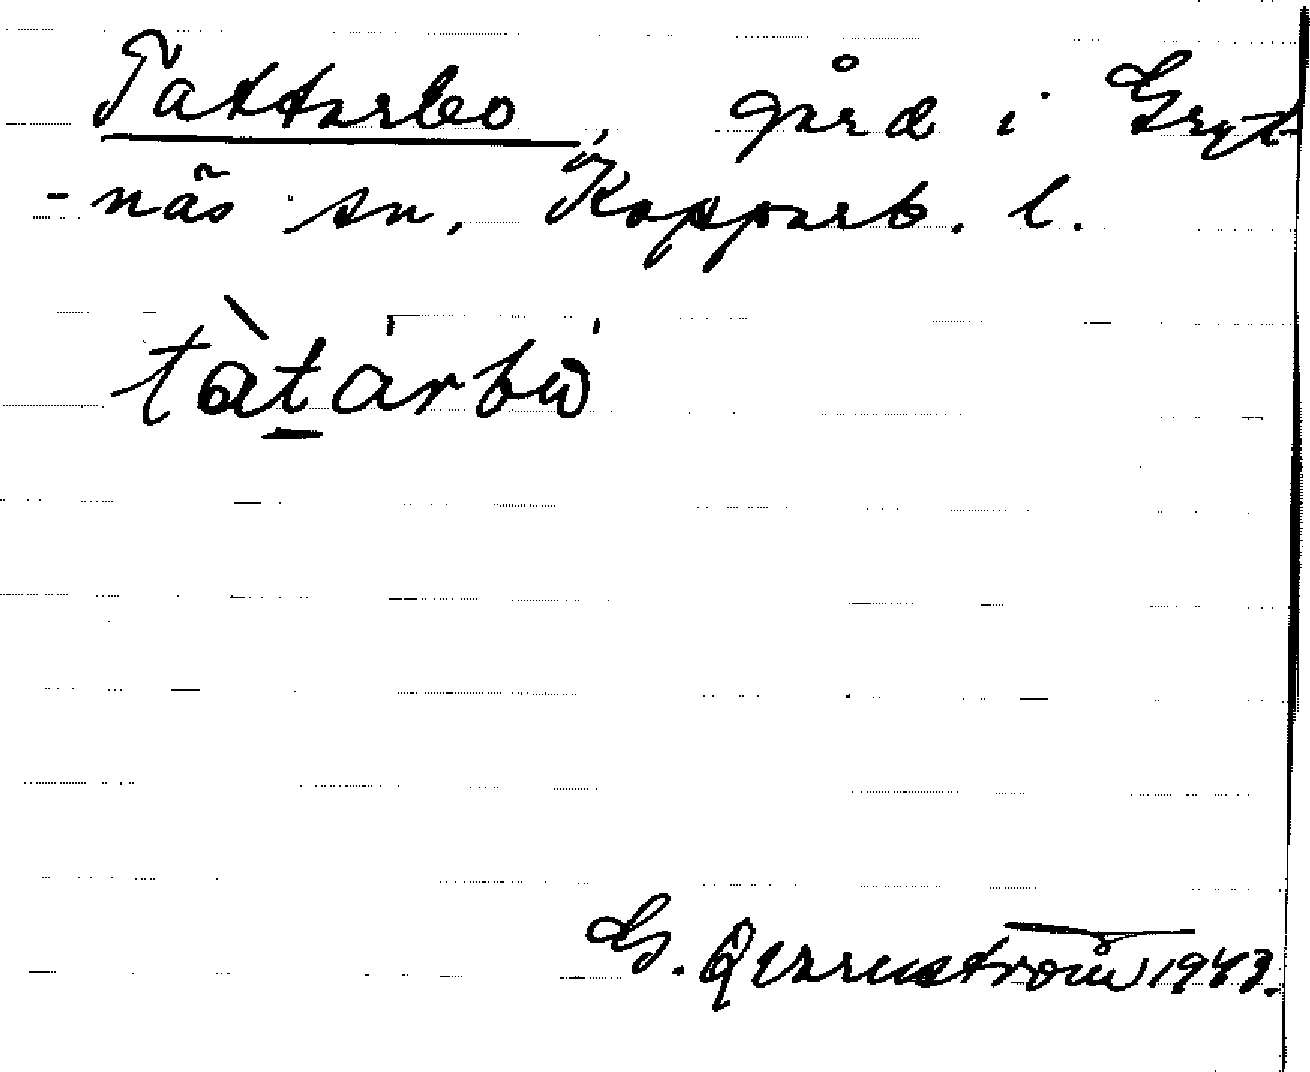 Tattarbo, gård i Gryt
-näs sn, Kopparb. l.
tàt̲arbω
G. Qvarnström 1943.